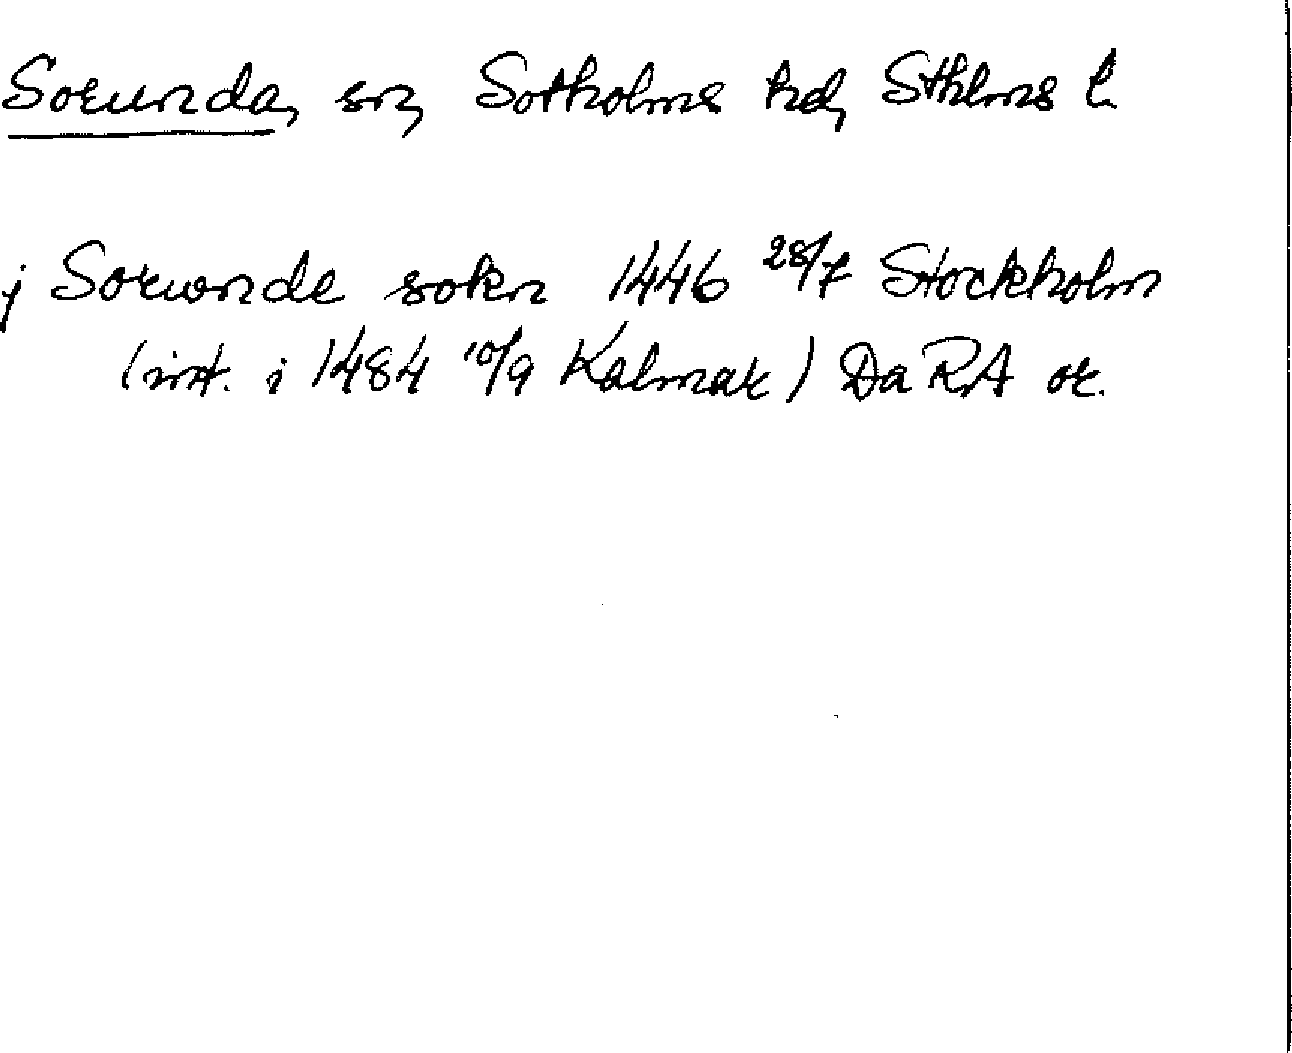 Sorunda, sn, Sotholms hd, Sthlms l.
j Sorwnde sokn 1446 28/7 Stockholm
(int. i 1484 10/9 Kalmar) Da RA or.